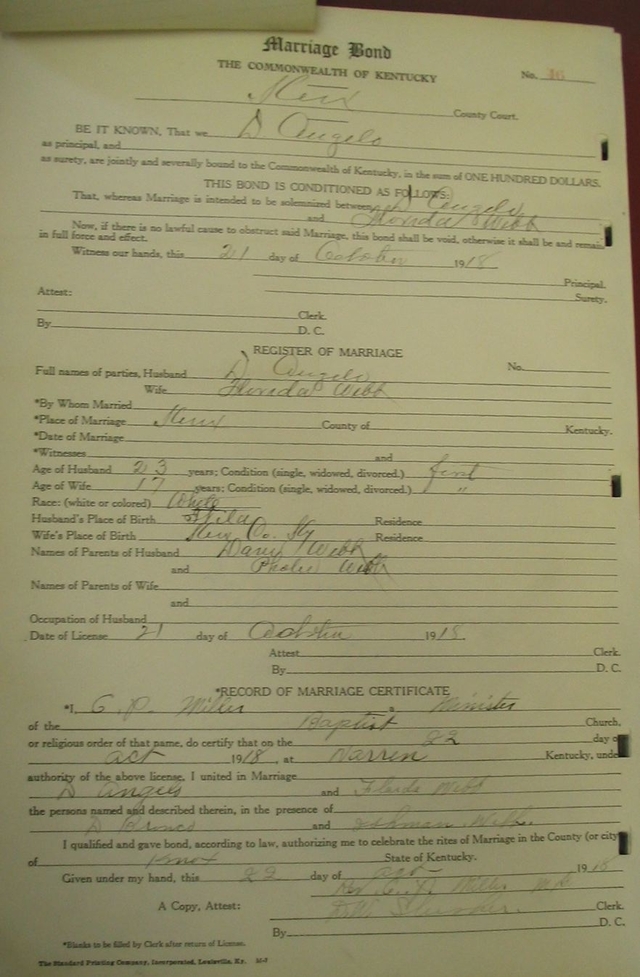 Marriage Bond
THE COMMONWEALTH OF KENTUCKY
No.
County Court.
BE IT KNOWN, That we D Angelo
as principal, and
as surety, are jointly and severally bound to the Commonwealth of Kentucky, in the sum of ONE HUNDRED DOLLARS.
THIS BOND IS CONDITIONED AS FOLLOWS:
That, whereas Marriage is intended to be solemnized between D Angelo
and Florida Webb
Now, if there is no lawful cause to obstruct said Marriage, this bond shall be void, otherwise it shall be and remain
in full force and effect.
Witness our hands, this 21 day of October 1918
Principal.
Surety.
Attest:
Clerk.
By D. C.
REGISTER OF MARRIAGE
No.
Full names of parties, Husband D Angelo
Wife Florida Webb
*By Whom Married
*Place of Marriage County of Kentucky.
*Date of Marriage
*Witnesses and
Age of Husband 23 years; Condition (single, widowed, divorced.) first
Age of Wife 17 years; Condition (single, widowed, divorced.) "
Race: (white or colored) White
Husband's Place of Birth Residence
Wife's Place of Birth Co. Ky Residence
Names of Parents of Husband Webb
and Webb
Names of Parents of Wife
and
Occupation of Husband
Date of License 21 day of October 1918
Attest Clerk.
By D. C.
*RECORD OF MARRIAGE CERTIFICATE
*I, Miller a Minister
of the Baptist Church.
or religious order of that name, do certify that on the 22 day of
Oct 1918, at Warren Kentucky, under
authority of the above license, I united in Marriage
D Angelo and Webb
the persons named and described therein, in the presence of
D and
I qualified and gave bond, according to law, authorizing me to celebrate the rites of Marriage in the County (or city)
of Knox State of Kentucky.
Given under my hand, this 22 day of Oct 1918
Miller
A Copy, Attest: Clerk.
By D. C.
*Blanks to be filled by Clerk after return of License.
The Standard Printing Company, Incorporated, Louisville, Ky.